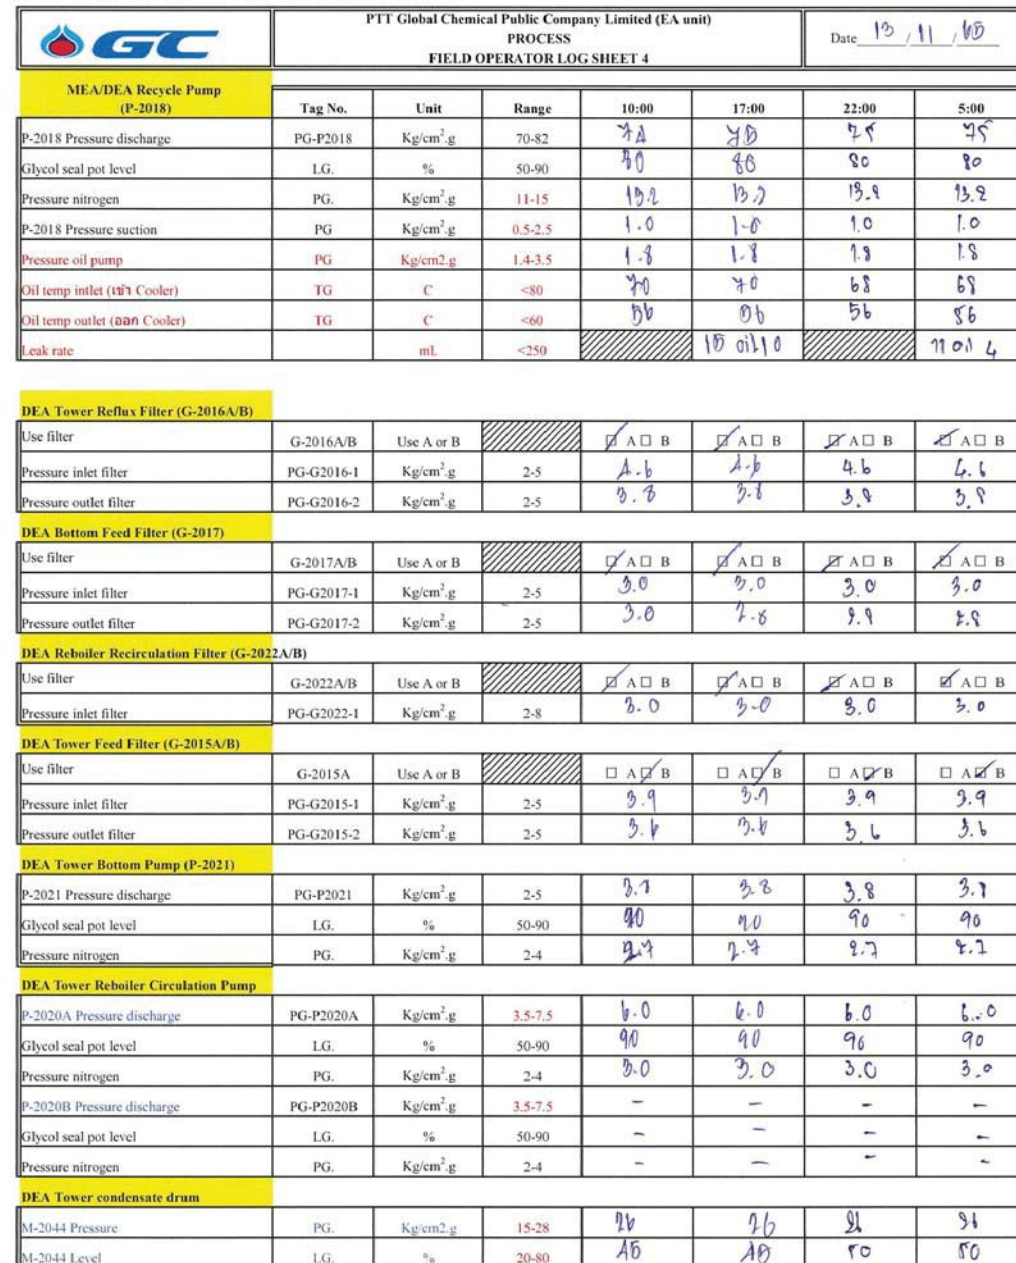 GC
PTT Global Chemical Public Company Limited (EA unit)
PROCESS
FIELD OPERATOR LOG SHEET 4
Date 13 / 11 / 65
MEA/DEA Recycle Pump
(P-2018) Tag No. Unit Range 10:00 17:00 22:00 5:00
P-2018 Pressure discharge PG-P2018 Kg/cm².g 70-82 75 75
Glycol seal pot level LG. % 50-90 80 80 80
Pressure nitrogen PG. Kg/cm².g 11-15 13.2 13.2 13.2 13.2
P-2018 Pressure suction PG Kg/cm².g 0.5-2.5 1.0 1.0 1.0 1.0
Pressure oil pump PG Kg/cm2.g 1.4-3.5 1.8 1.8 1.8 1.8
Oil temp intlet (เข้า Cooler) TG C <80 70 70 68 68
Oil temp outlet (ออก Cooler) TG C <60 56 56 56 56
Leak rate ml. <250 15 oil 10 oil 4
DEA Tower Reflux Filter (G-2016A/B)
Use filter G-2016A/B Use A or B ☑ A ☐ B ☑ A ☐ B ☑ A ☐ B ☑ A ☐ B
Pressure inlet filter PG-G2016-1 Kg/cm².g 2-5 4.6 4.6 4.6 4.6
Pressure outlet filter PG-G2016-2 Kg/cm².g 2-5 3.8 3.8 3.8 3.8
DEA Bottom Feed Filter (G-2017)
Use filter G-2017A/B Use A or B ☑ A ☐ B ☑ A ☐ B ☑ A ☐ B ☑ A ☐ B
Pressure inlet filter PG-G2017-1 Kg/cm².g 2-5 3.0 3.0 3.0 3.0
Pressure outlet filter PG-G2017-2 Kg/cm².g 2-5 3.0 2.8 2.8
DEA Reboiler Recirculation Filter (G-2022A/B)
Use filter G-2022A/B Use A or B ☑ A ☐ B ☑ A ☐ B ☑ A ☐ B ☑ A ☐ B
Pressure inlet filter PG-G2022-1 Kg/cm².g 2-8 3.0 3.0 3.0 3.0
DEA Tower Feed Filter (G-2015A/B)
Use filter G-2015A Use A or B ☐ A ☑ B ☐ A ☑ B ☐ A ☑ B ☐ A ☑ B
Pressure inlet filter PG-G2015-1 Kg/cm².g 2-5 3.9 3.9 3.9 3.9
Pressure outlet filter PG-G2015-2 Kg/cm².g 2-5 3.6 3.6 3.6 3.6
DEA Tower Bottom Pump (P-2021)
P-2021 Pressure discharge PG-P2021 Kg/cm².g 2-5 3.8 3.8 3.8
Glycol seal pot level LG. % 50-90 90 90 90 90
Pressure nitrogen PG. Kg/cm².g 2-4 2.7 2.7 2.7 2.7
DEA Tower Reboiler Circulation Pump
P-2020A Pressure discharge PG-P2020A Kg/cm².g 3.5-7.5 6.0 6.0 6.0 6.0
Glycol seal pot level LG. % 50-90 90 90 90 90
Pressure nitrogen PG. Kg/cm².g 2-4 3.0 3.0 3.0 3.0
P-2020B Pressure discharge PG-P2020B Kg/cm².g 3.5-7.5 - - - -
Glycol seal pot level LG. % 50-90 - - - -
Pressure nitrogen PG. Kg/cm².g 2-4 - - - -
DEA Tower condensate drum
M-2044 Pressure PG. Kg/cm2.g 15-28 26 26 26
M-2044 Level LG. % 20-80 50 50